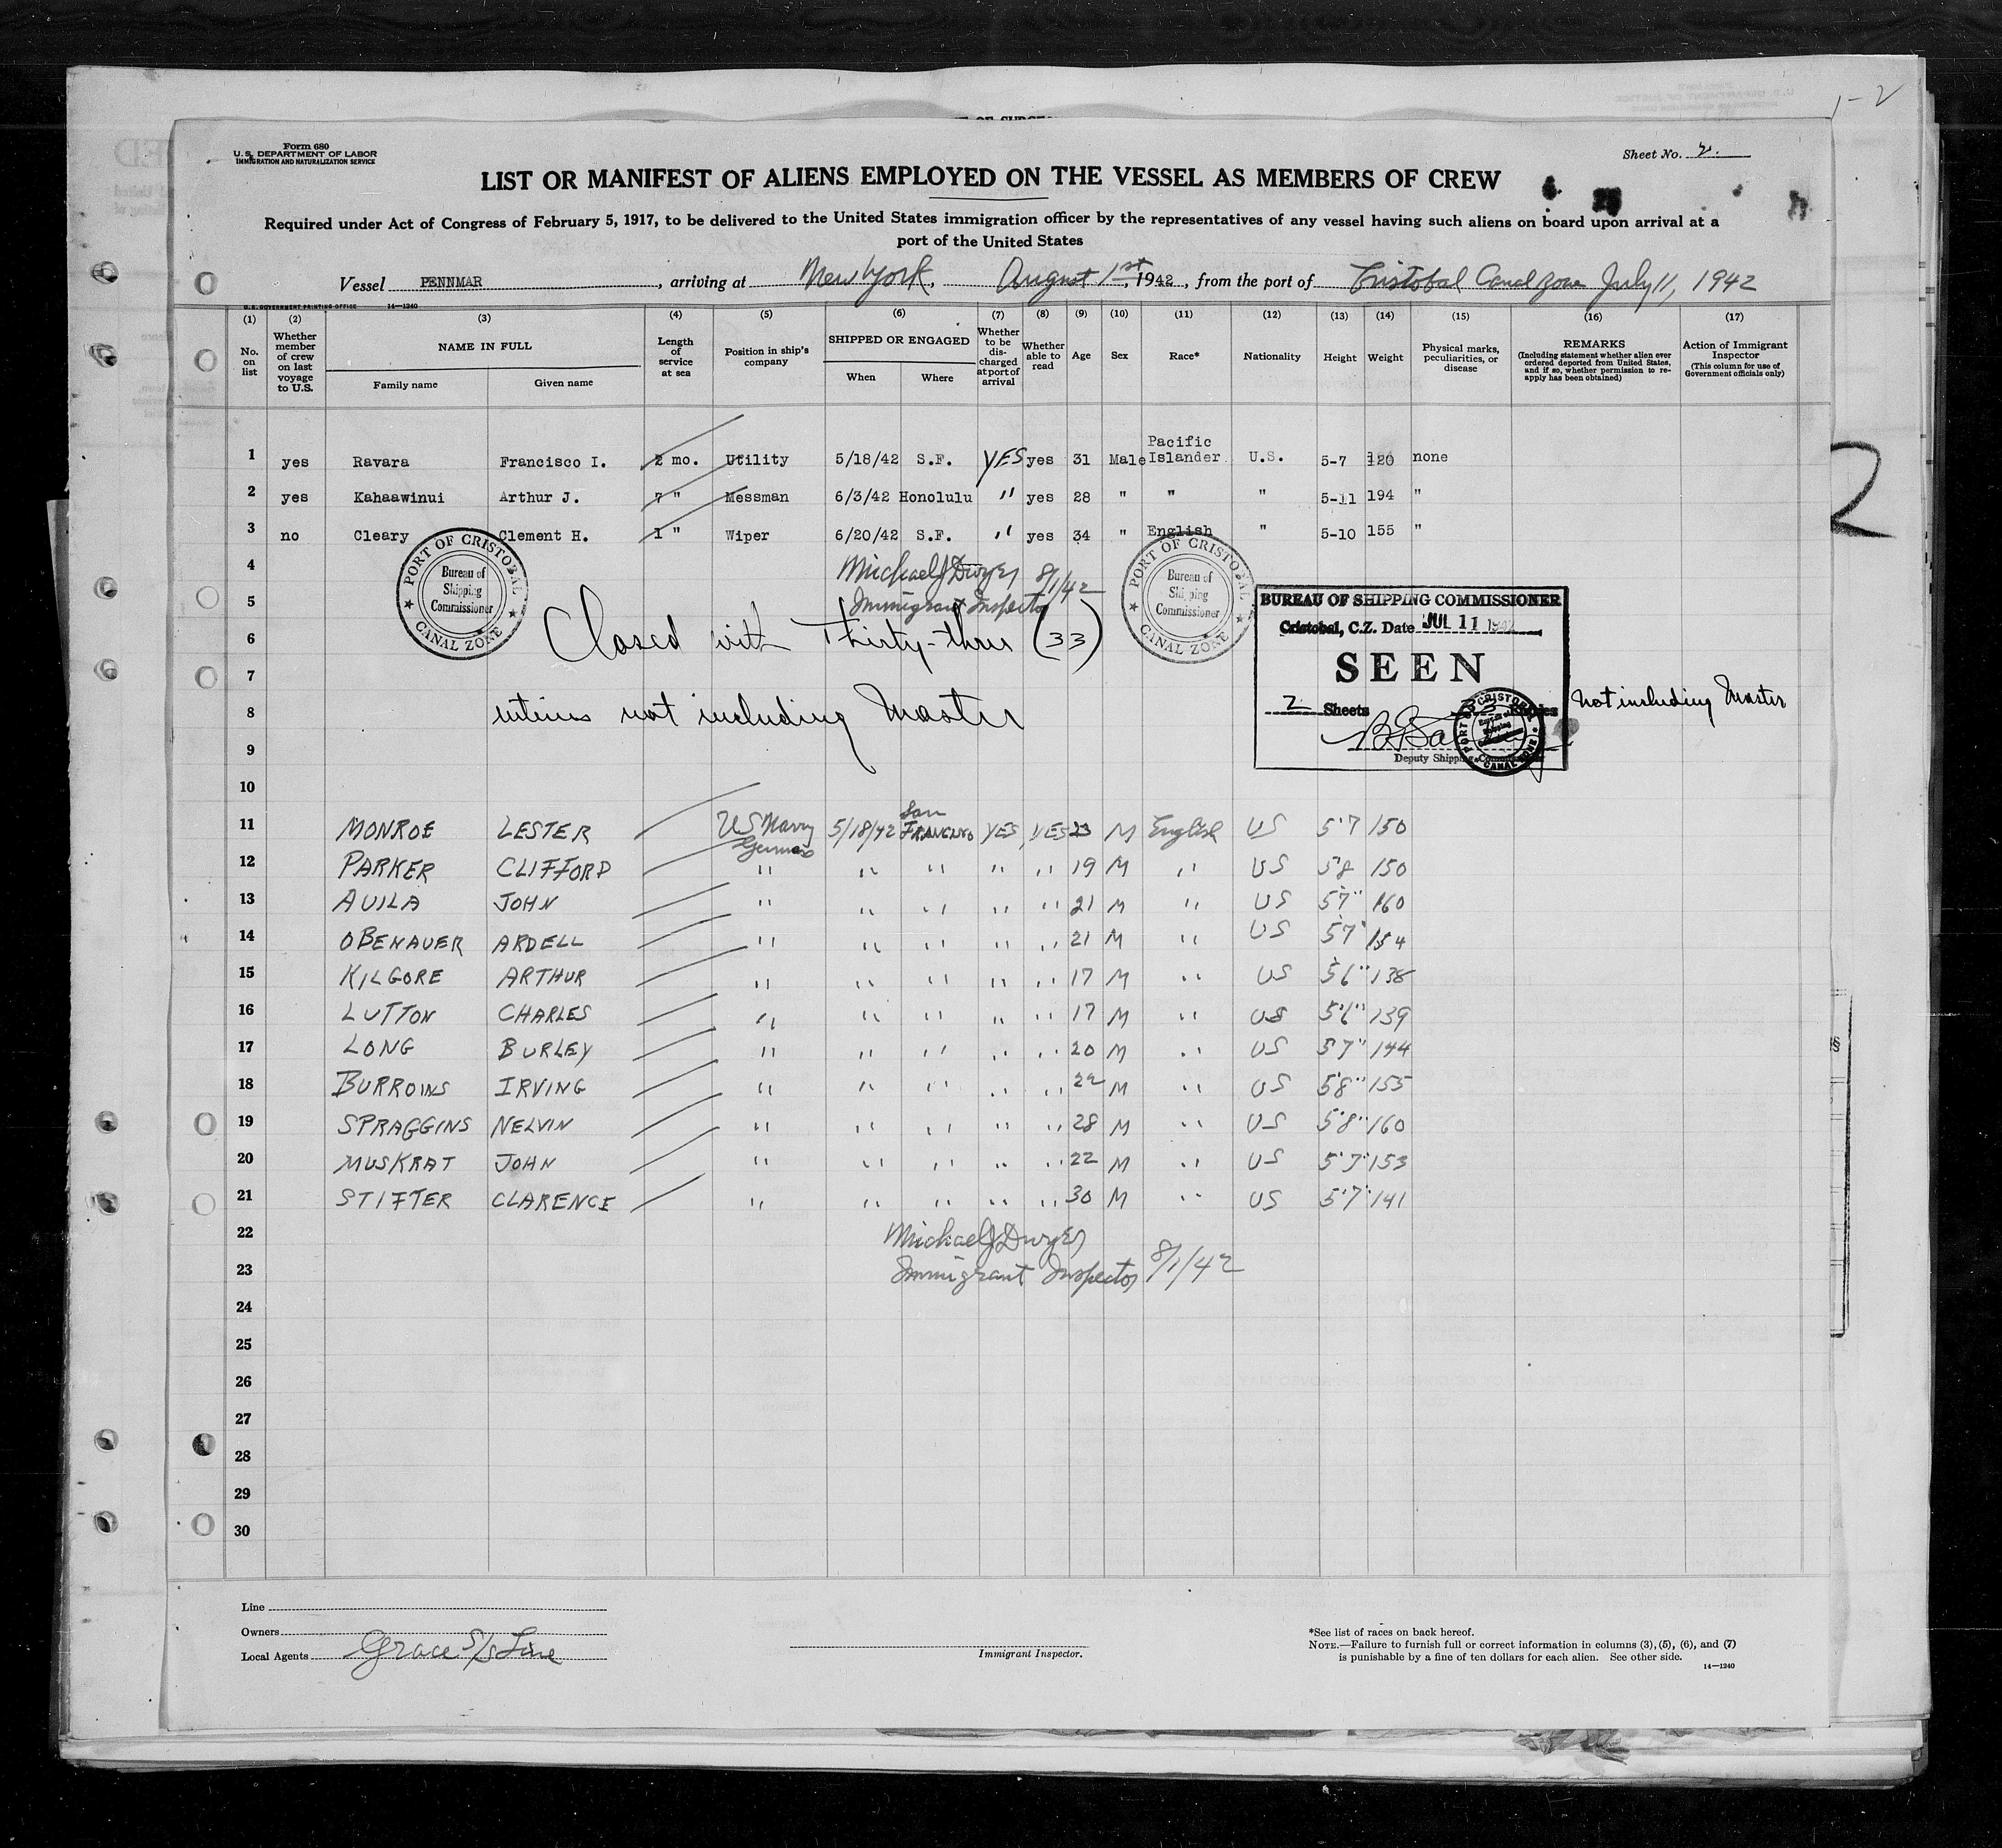 1-2
Form 680
U.S. DEPARTMENT OF LABOR
IMMIGRATION AND NATURALIZATION SERVICE
Sheet No. 2.
LIST OR MANIFEST OF ALIENS EMPLOYED ON THE VESSEL AS MEMBERS OF CREW
Required under Act of Congress of February 5, 1917, to be delivered to the United States immigration officer by the representatives of any vessel having such aliens on board upon arrival at a
port of the United States
Vessel PENNMAR, arriving at New York, August 1st, 1942, from the port of Cristobal Canal Zone July 11, 1942
U.S. GOVERNMENT PRINTING OFFICE 14—1240
(1) (2) (3) (4) (5) (6) (7) (8) (9) (10) (11) (12) (13) (14) (15) (16) (17)
No. on list
Whether member of crew on last voyage to U.S.
NAME IN FULL
Family name Given name
Length of service at sea
Position in ship's company
SHIPPED OR ENGAGED
When Where
Whether to be discharged at port of arrival
Whether able to read
Age Sex Race* Nationality Height Weight
Physical marks, peculiarities, or disease
REMARKS
(Including statement whether alien ever ordered deported from United States, and if so, whether permission to reapply has been obtained)
Action of Immigrant Inspector
(This column for use of Government officials only)
1 yes Ravara Francisco I. 2 mo. Utility 5/18/42 S.F. YES yes 31 Male Pacific Islander U.S. 5-7 120 none
2 yes Kahaawinui Arthur J. 7 " Messman 6/3/42 Honolulu " yes 28 " " " 5-11 194 "
3 no Cleary Clement H. 1 " Wiper 6/20/42 S.F. " yes 34 " English " 5-10 155 "
4 Michael J Dwyer 8/1/42
5 Immigrant Inspector
6 Closed with Thirty-three (33)
7
8 entries not including Master
9
10
PORT OF CRISTOBAL
Bureau of
Shipping
Commissioner
CANAL ZONE
PORT OF CRISTOBAL
Bureau of
Shipping
Commissioner
CANAL ZONE
BUREAU OF SHIPPING COMMISSIONER
Cristobal, C.Z. Date JUL 11 1942
SEEN
2 Sheets 33 Entries not including Master
Deputy Shipping Commissioner
PORT OF CRISTOBAL
CANAL ZONE
2
11 MONROE LESTER US Navy Gunners 5/18/42 San FRANCISCO YES YES 23 M English US 5'7 150
12 PARKER CLIFFORD " " " " " 19 M " US 5'8 150
13 AVILA JOHN " " " " " 21 M " US 5'7" 160
14 OBENAUER ARDELL " " " " " 21 M " US 5'7" 154
15 KILGORE ARTHUR " " " " " 17 M " US 5'6" 138
16 LUTTON CHARLES " " " " " 17 M " US 5'6" 139
17 LONG BURLEY " " " " " 20 M " US 5'7" 144
18 BURROINS IRVING " " " " " 22 M " US 5'8" 155
19 SPRAGGINS NELVIN " " " " " 28 M " US 5'8" 160
20 MUSKRAT JOHN " " " " " 22 M " US 5'7" 153
21 STIFTER CLARENCE " " " " " 30 M " US 5'7" 141
22 Michael J Dwyer
23 Immigrant Inspector 8/1/42
24
25
26
27
28
29
30
Line
Owners
Local Agents Grace S/S Line
Immigrant Inspector.
*See list of races on back hereof.
NOTE.—Failure to furnish full or correct information in columns (3), (5), (6), and (7)
is punishable by a fine of ten dollars for each alien. See other side.
14—1240